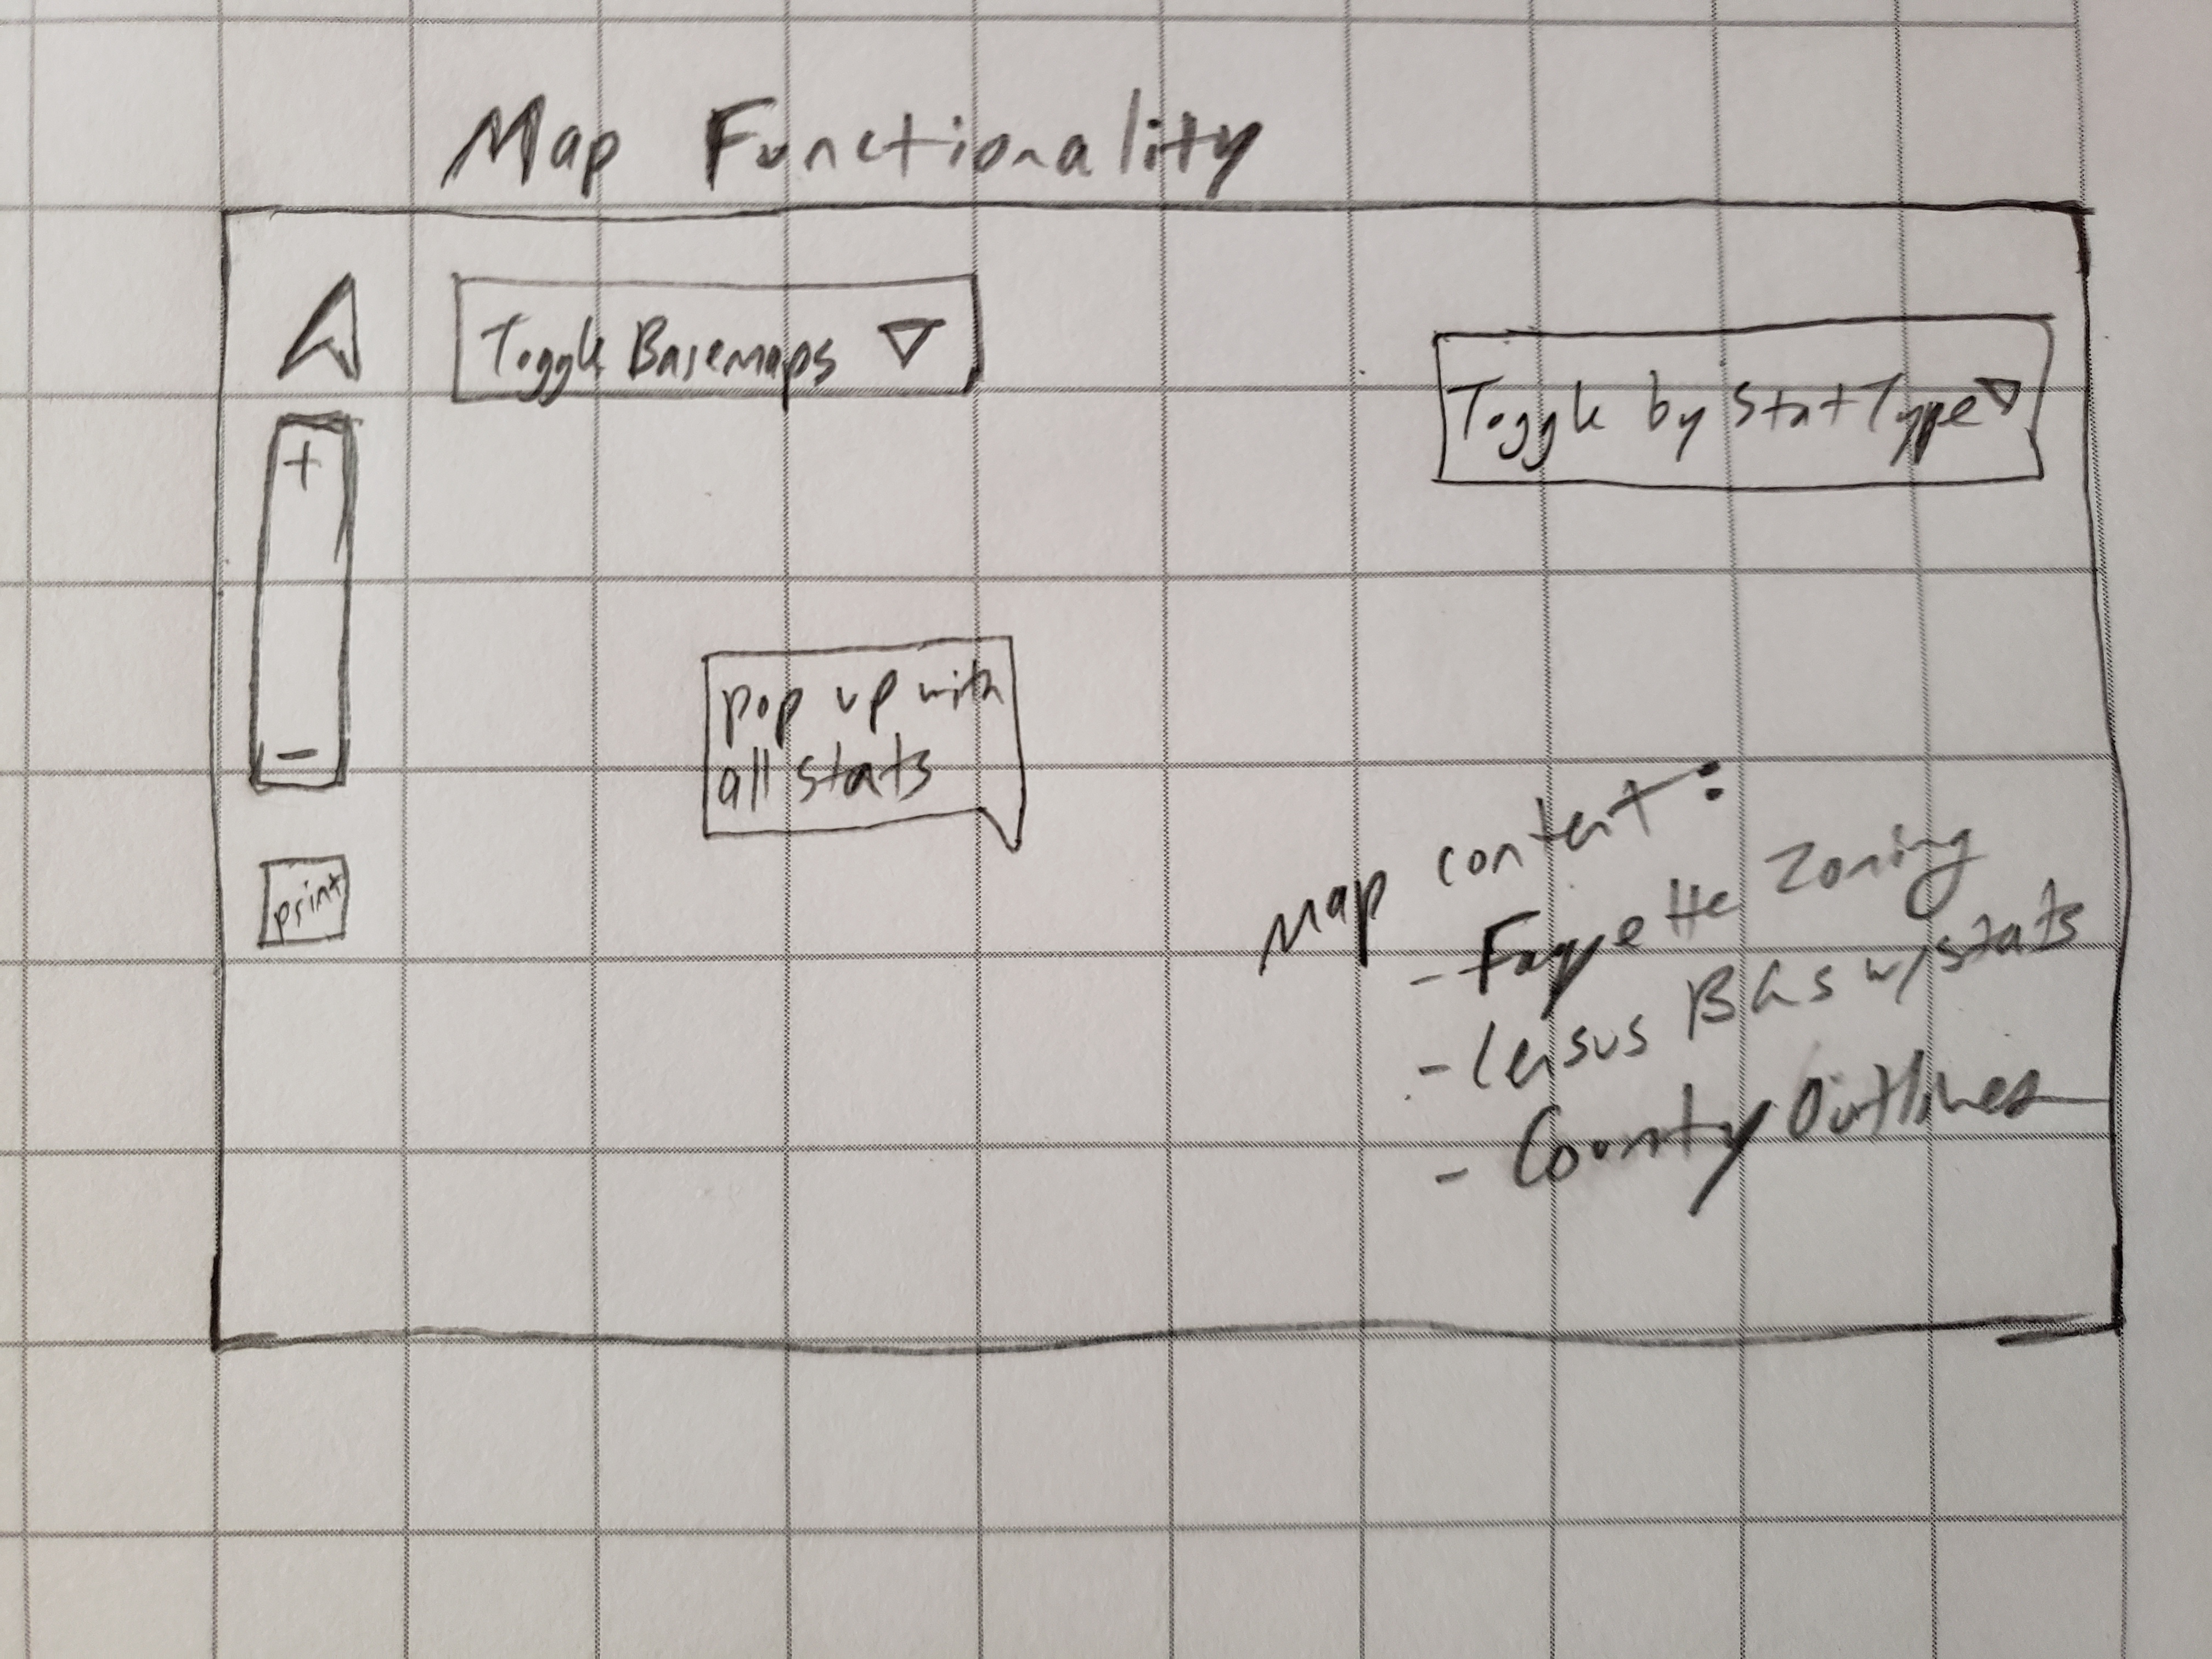 Map Functionality
Toggle Basemaps
Toggle by Stat Type
+
-
pop up with
all stats
print
Map content:
- Fayette Zoning
- Census BGs w/stats
- County Outlines